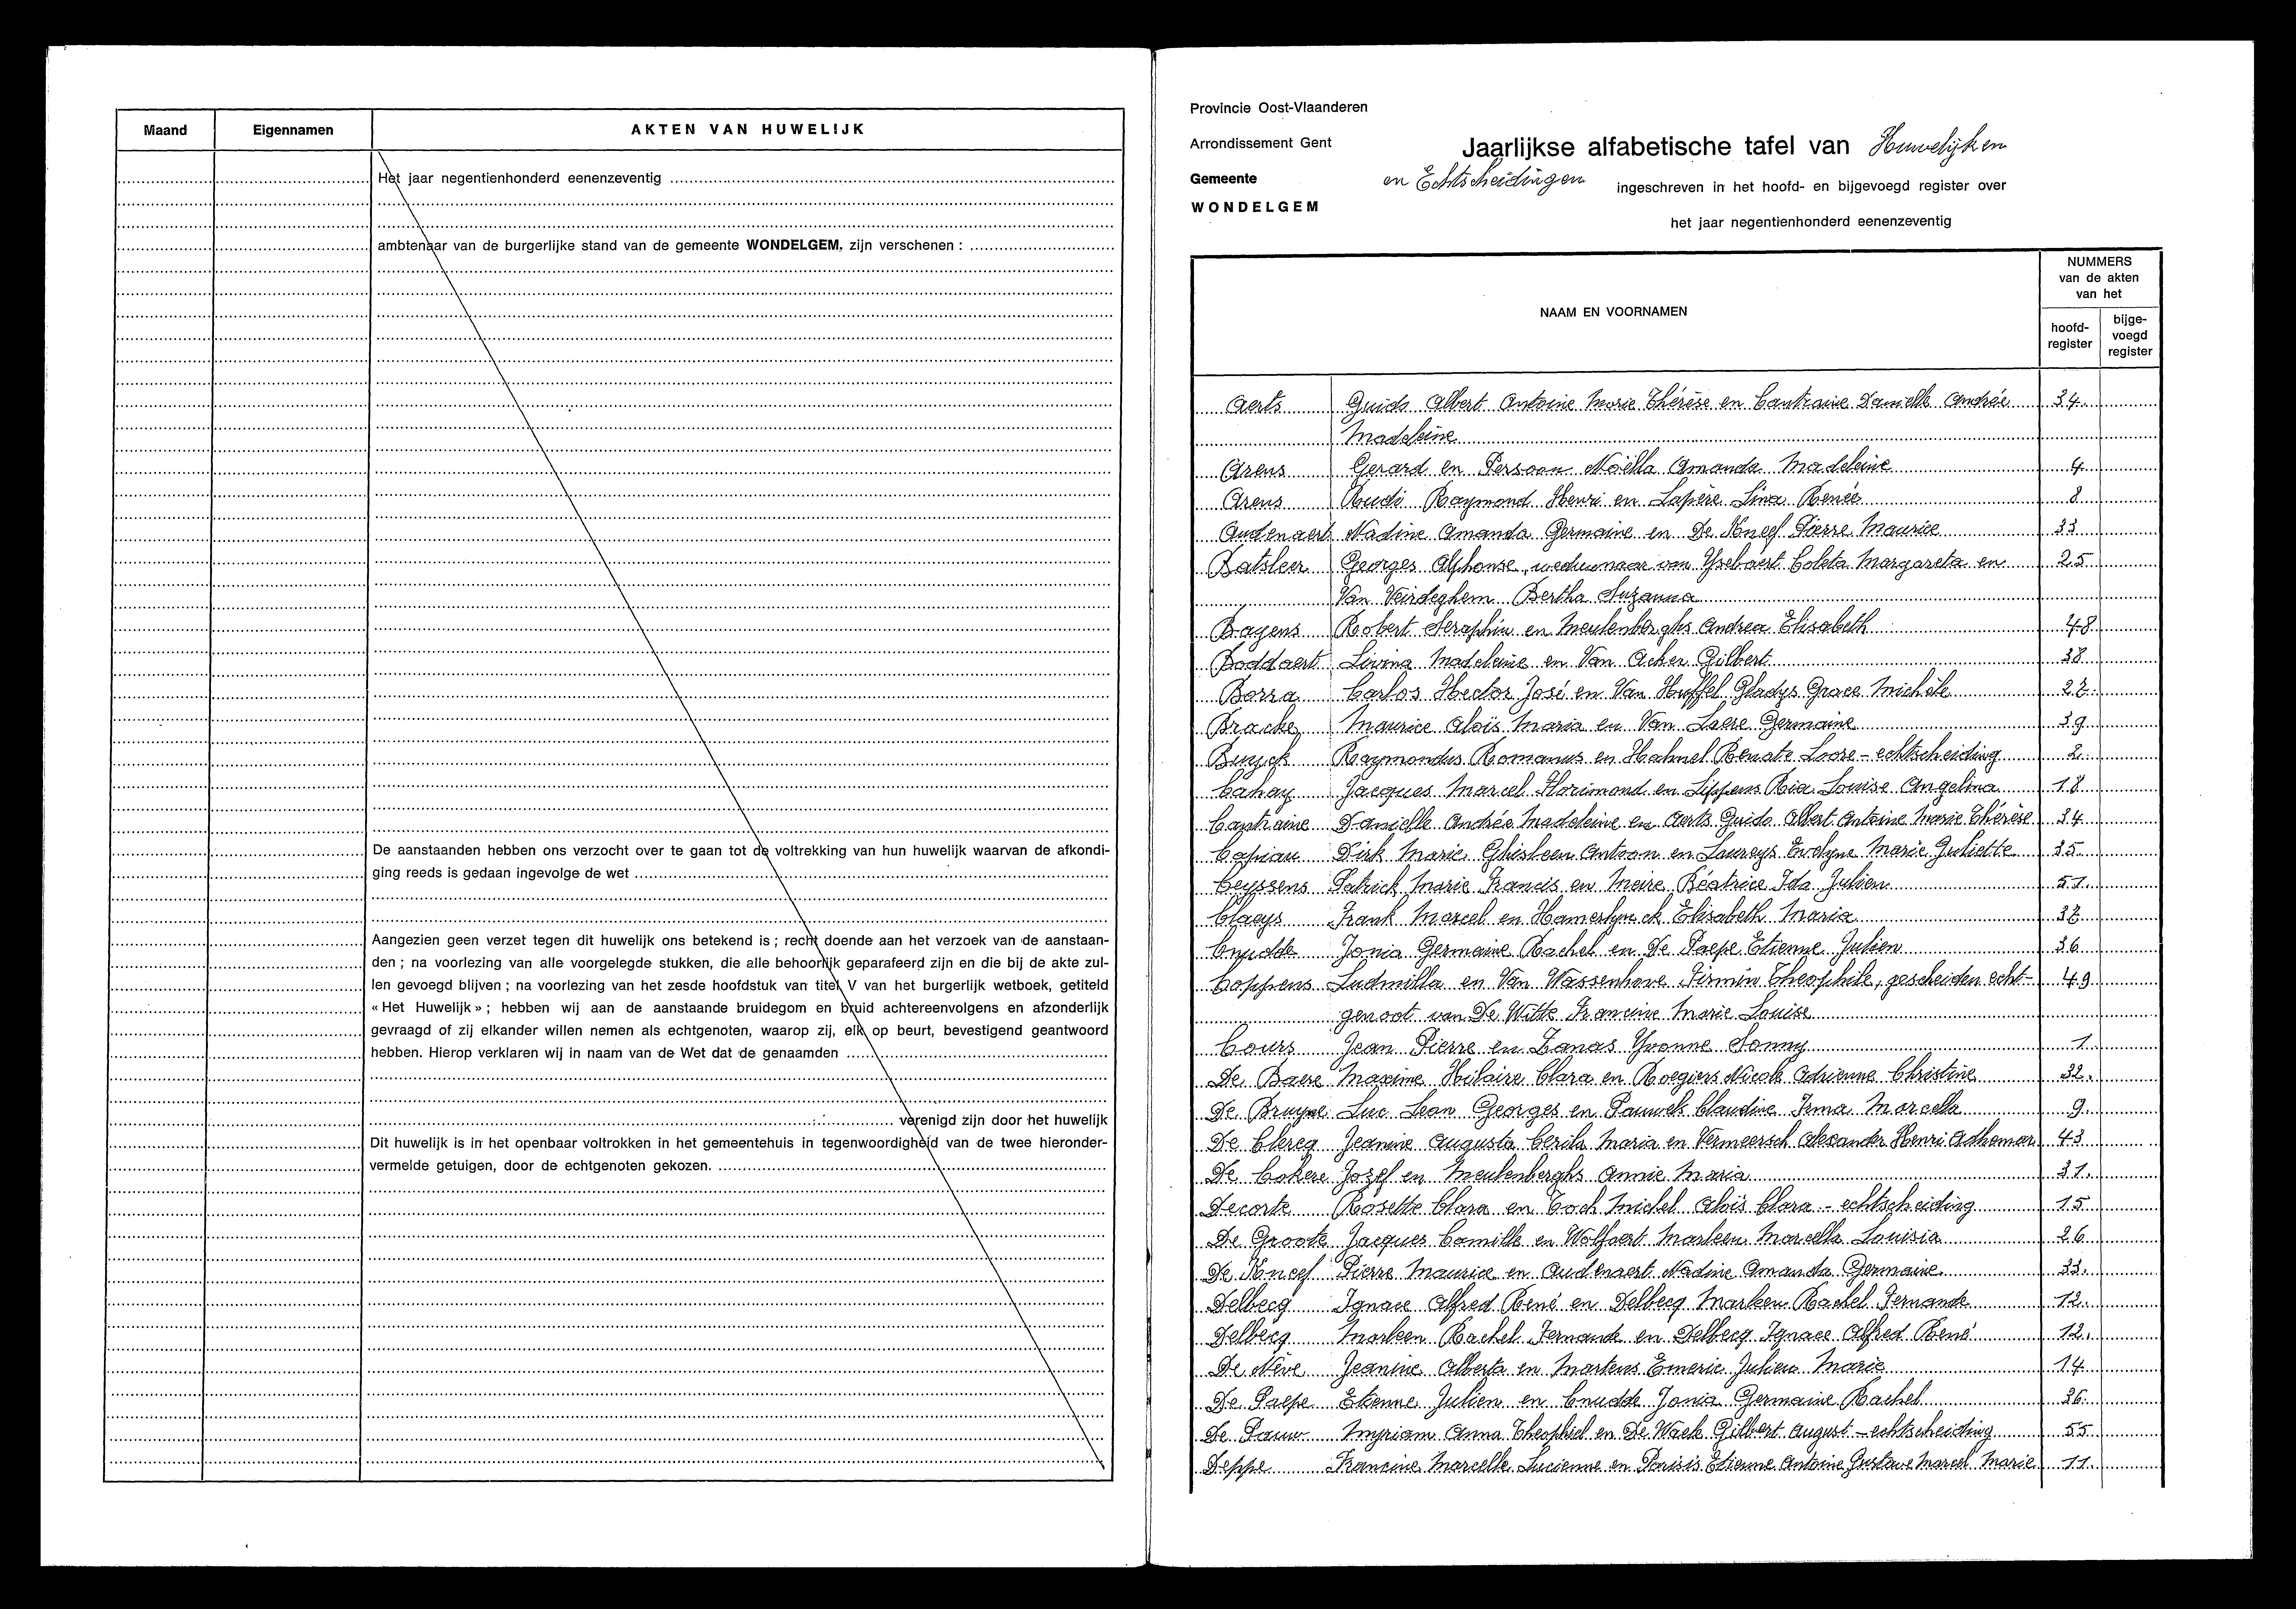 Maand Eigennamen AKTEN VAN HUWELIJK
Het jaar negentienhonderd eenenzeventig
ambtenaar van de burgerlijke stand van de gemeente WONDELGEM, zijn verschenen :
De aanstaanden hebben ons verzocht over te gaan tot de voltrekking van hun huwelijk waarvan de afkondi-
ging reeds is gedaan ingevolge de wet
Aangezien geen verzet tegen dit huwelijk ons betekend is ; recht doende aan het verzoek van de aanstaan-
den ; na voorlezing van alle voorgelegde stukken, die alle behoorlijk geparafeerd zijn en die bij de akte zul-
len gevoegd blijven ; na voorlezing van het zesde hoofdstuk van titel V van het burgerlijk wetboek, getiteld
« Het Huwelijk » ; hebben wij aan de aanstaande bruidegom en bruid achtereenvolgens en afzonderlijk
gevraagd of zij elkander willen nemen als echtgenoten, waarop zij, elk op beurt, bevestigend geantwoord
hebben. Hierop verklaren wij in naam van de Wet dat de genaamden
verenigd zijn door het huwelijk
Dit huwelijk is in het openbaar voltrokken in het gemeentehuis in tegenwoordigheid van de twee hieronder-
vermelde getuigen, door de echtgenoten gekozen.
Provincie Oost-Vlaanderen
Arrondissement Gent
Gemeente
WONDELGEM
Jaarlijkse alfabetische tafel van Huwelijken
en Echtscheidingen ingeschreven in het hoofd- en bijgevoegd register over
het jaar negentienhonderd eenenzeventig
NAAM EN VOORNAMEN
NUMMERS
van de akten
van het
hoofd-
register
bijge-
voegd
register
Aerts Guido Albert Antoine Marie Thérèse en Cantraine Danielle Andrée 34.
Madeleine
Arens Gerard en Persoon Noëlla Amanda Madeleine 4
Arens Rudi Raymond Henri en Lapère Lina Renée 8
Audenaert Nadine Amanda Germaine en De Kneef Pierre Maurice 33
Batsleer Georges Alphonse, weduwnaar van Ysebaert Coleta Margareta en 25
Van Veirdeghem Bertha Suzanna
Bayens Robert Seraphin en Meulenberghs Andrea Elisabeth 48
Boddaert Livina Madeleine en Van Acker Gilbert 38
Borra Carlos Hector José en Van Huffel Gladys Grace Michèle 27.
Bracke Maurice Aloïs Maria en Van Laere Germaine 39
Buyck Raymondus Romanus en Hahnel Renate Loore - echtscheiding 2.
Cahay Jacques Marcel Florimond en Lippens Ria Louise Angelina 18
Cantraine Danielle Andrée Madeleine en Aerts Guido Albert Antoine Marie Thérèse 34
Capiau Dirk Marie Ghisleen Antoon en Laureys Evelyne Marie Juliette 35.
Ceyssens Patrick Marie Francis en Meire Béatrice Ida Julien 51.
Claeys Frank Marcel en Hamerlynck Elisabeth Maria 37
Cnudde Jonia Germaine Rachel en De Paepe Etienne Julien 36
Coppens Ludmilla en Van Wassenhove Firmin Theophile, gescheiden echt- 49
genoot van De Witte Francine Marie Louise
Cours Jean Pierre en Zanas Yvonne Sonny 1.
De Baere Maxime Hilaire Clara en Roegiers Nicole Adrienne Christine 32.
De Bruyne Luc Leon Georges en Pauwels Claudine Irma Marcella 9.
De Clercq Jeanine Augusta Cecile Maria en Vermeersch Alexander Henri Adhemar 43
De Cokere Jozef en Meulenberghs Annie Maria 31.
Decorte Rosette Clara en Coch Michel Aloïs Clara - echtscheiding 15
De Groote Jacques Camille en Wolfaert Marleen Marcella Louisia 26
De Kneef Pierre Maurice en Audenaert Nadine Amanda Germaine 33.
Delbecq Ignace Alfred René en Delbecq Marleen Rachel Fernande 12.
Delbecq Marleen Rachel Fernande en Delbecq Ignace Alfred René 12.
De Nève Jeanine Alberta en Martens Emeric Julien Marie 14
De Paepe Etienne Julien en Cnudde Jonia Germaine Rachel 36.
De Pauw Myriam Anna Theophiel en De Waele Gilbert August - echtscheiding 55
Deppe Francine Marcelle Lucienne en Parisis Etienne Antoine Gustave Marcel Marie 11.